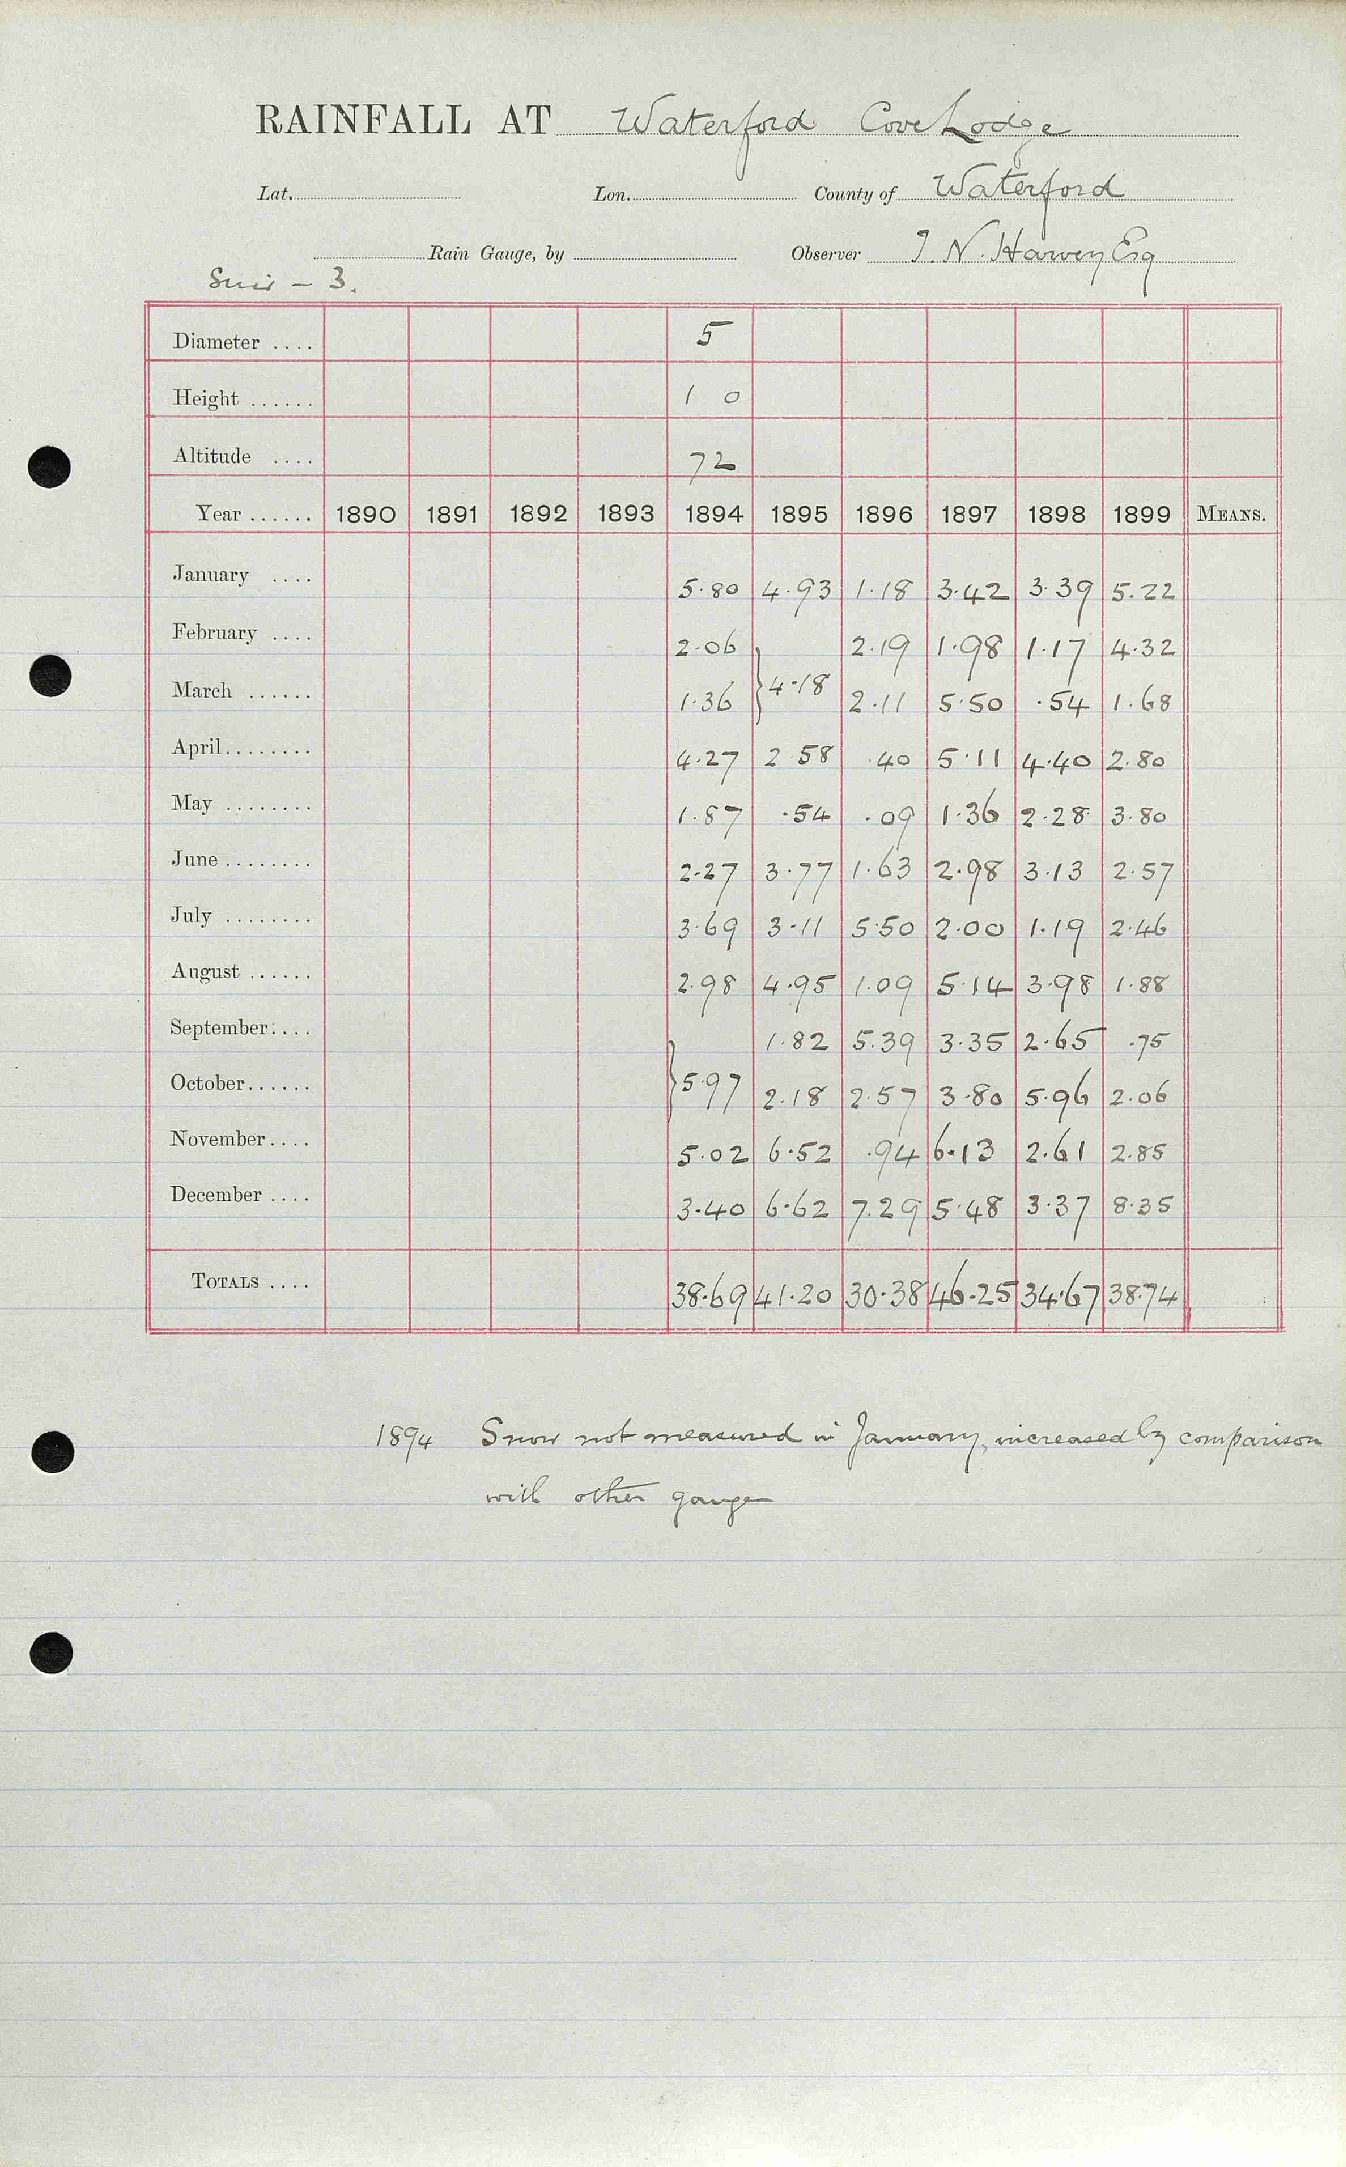 RAINFALL AT Waterford Cove Lodge
Lat. Lon. County of Waterford
Rain Gauge, by Observer J. N. Harvey Esq
Suir – 3.
Diameter .... 5
Height ...... 1 0
Altitude .... 72
Year ...... 1890 1891 1892 1893 1894 1895 1896 1897 1898 1899 MEANS.
January .... 5.80 4.93 1.18 3.42 3.39 5.22
February .... 2.06 2.19 1.98 1.17 4.32
March ...... 1.36 } 4.18 2.11 5.50 .54 1.68
April ........ 4.27 2 58 .40 5.11 4.40 2.80
May ........ 1.87 .54 .09 1.36 2.28 3.80
June ........ 2.27 3.77 1.63 2.98 3.13 2.57
July ........ 3.69 3.11 5.50 2.00 1.19 2.46
August ...... 2.98 4.95 1.09 5.14 3.98 1.88
September .... 1.82 5.39 3.35 2.65 .75
October ...... } 5.97 2.18 2.57 3.80 5.96 2.06
November .... 5.02 6.52 .94 6.13 2.61 2.85
December .... 3.40 6.62 7.29 5.48 3.37 8.35
TOTALS .... 38.69 41.20 30.38 46.25 34.67 38.74
1894 Snow not measured in January, increased by comparison
with other gauge